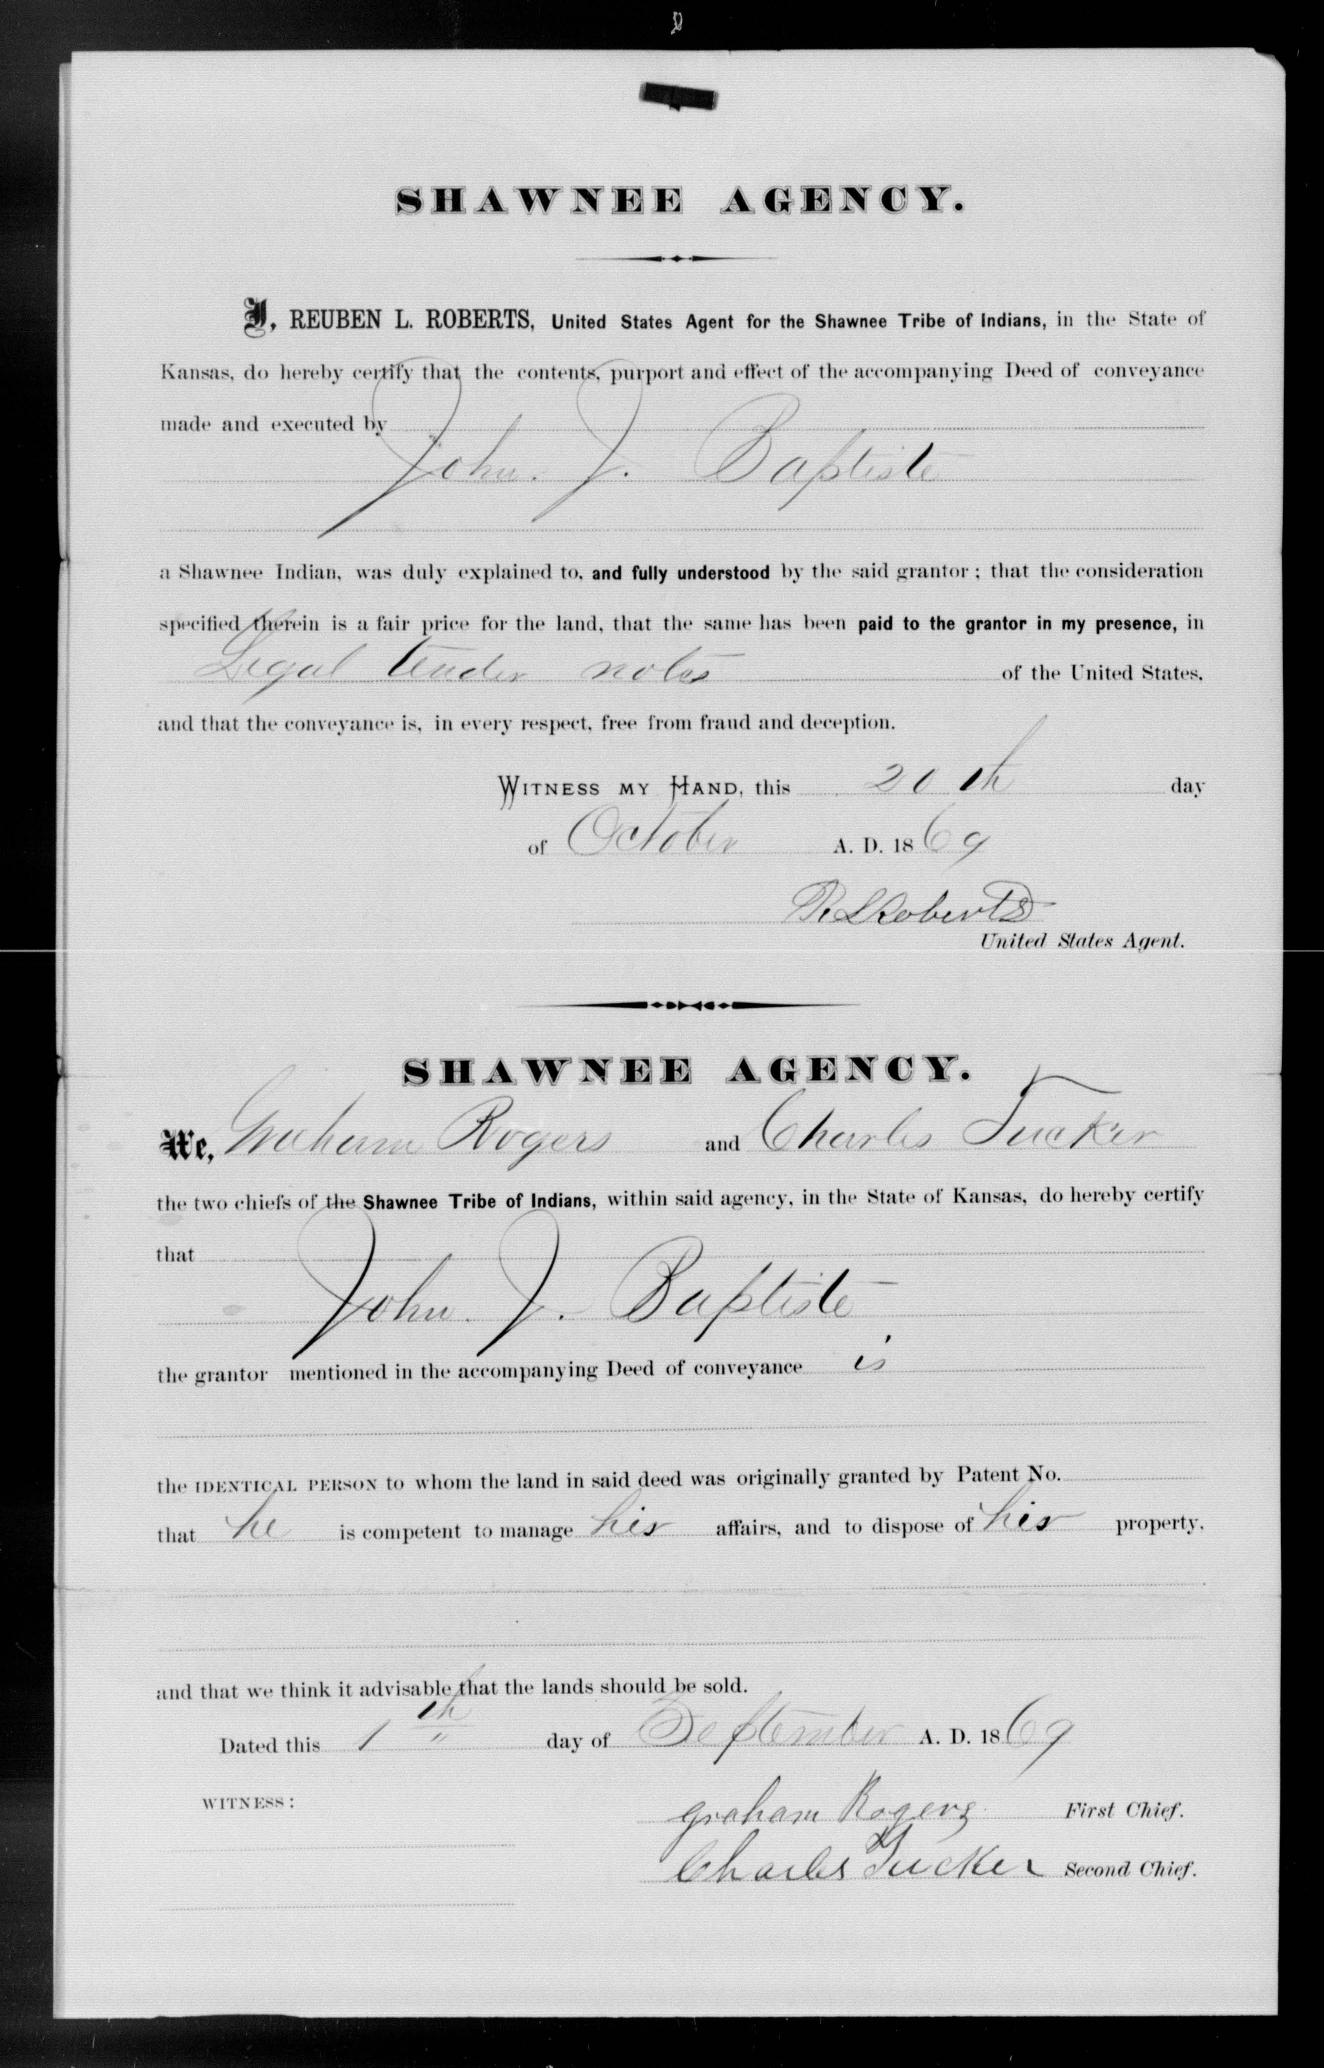 SHAWNEE AGENCY.
I, REUBEN L. ROBERTS, United States Agent for the Shawnee Tribe of Indians, in the State of
Kansas, do hereby certify that the contents, purport and effect of the accompanying Deed of conveyance
made and executed by
John. J. Baptiste
a Shawnee Indian, was duly explained to, and fully understood by the said grantor; that the consideration
specified therein is a fair price for the land, that the same has been paid to the grantor in my presence, in
Legal tender notes of the United States,
and that the conveyance is, in every respect, free from fraud and deception.
WITNESS MY HAND, this 20th day
of October A. D. 1869
R L Roberts
United States Agent.
SHAWNEE AGENCY.
We, Graham Rogers and Charles Tucker
the two chiefs of the Shawnee Tribe of Indians, within said agency, in the State of Kansas, do hereby certify
that
John. J. Baptiste
the grantor mentioned in the accompanying Deed of conveyance is
the IDENTICAL PERSON to whom the land in said deed was originally granted by Patent No.
that he is competent to manage his affairs, and to dispose of his property,
and that we think it advisable that the lands should be sold.
Dated this 1th day of September A. D. 1869
WITNESS:
graham Rogers First Chief.
Charles Tucker Second Chief.